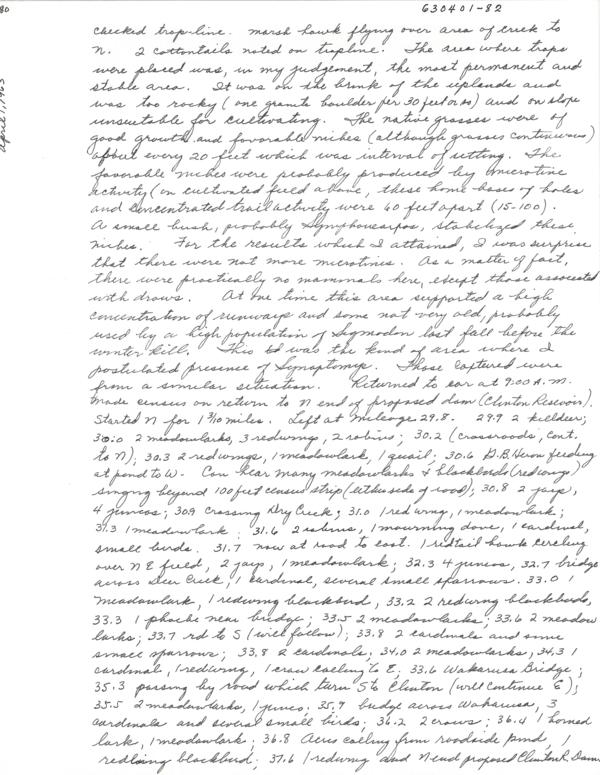 80
630401-82
April 1, 1963
checked trap-line. marsh hawk flying over area of creek to
N. 2 cottontails noted on trapline. The area where traps
were placed was, in my judgement, the most permanent and
stable area. It was on the brink of the uplands and
was too rocky (one granite boulder per 30 feet or so) and on slope
unsuitable for cultivating. The native grasses were of
good growth and favorable niches (although grasses continuous)
about every 20 feet which was interval of setting. The
favorable niches were probably produced by microtine
activity (on cultivated field above, these home bases of holes
and concentrated trail activity were 60 feet apart (15-100).
A small bush, probably Symphoricarpos, stabilized these
niches. For the results which I attained, I was surprise
that there were not more microtines. As a matter of fact,
there were practically no mammals here, except those associated
with draws. At one time this area supported a high
concentration of runways and some not very old, probably
used by a high population of Sigmodon last fall before the
winter kill. This was the kind of area where I
postulated presence of Synaptomys. Those captured were
from a similar situation. Returned to car at 9:00 A.M.
Made census on return to N end of proposed dam (Clinton Resevoir).
Started N for 1 3/10 miles. Left at mileage 29.8. 29.9 2 killdeer;
30.0 2 meadowlarks, 3 redwings, 2 robins; 30.2 (crossroads, cont.
to N); 30.3 2 redwings, 1 meadowlark, 1 quail; 30.6 G.B. Heron feeding
at pond to W. Can hear many meadowlarks & blackbirds (redwings)
singing beyond 100 feet census strip (either side of road); 30.8 2 jays,
4 juncos; 30.9 crossing Dry Creek; 31.0 1 redwing, 1 meadowlark;
31.3 1 meadowlark; 31.6 2 robins, 1 mourning dove, 1 cardinal,
small birds. 31.7 now at road to east. 1 redtail hawk circling
over NE field, 2 jays, 1 meadowlark; 32.3 4 juncos, 32.7 bridge
across Deer Creek, 1 cardinal, several small sparrows. 33.0 1
meadowlark, 1 redwing blackbird, 33.2 2 redwing blackbirds,
33.3 1 phoebe near bridge; 33.5 2 meadowlarks; 33.6 2 meadow
larks; 33.7 rd to S (will follow); 33.8 2 cardinals and some
small sparrows; 33.8 2 cardinals; 34.0 2 meadowlarks; 34.3 1
cardinal, 1 redwing, 1 crow calling to E; 33.6 Wakarusa Bridge;
35.3 passing by road which turn S to Clinton (will continue E);
35.5 2 meadowlarks, 1 junco; 35.9 bridge across Wakarusa, 3
cardinals and several small birds; 36.2 2 crows; 36.4 1 horned
lark, 1 meadowlark; 36.8 Acris calling from roadside pond 1
redwing blackbird; 37.6 1 redwing and N end proposed Clinton R. Dam.